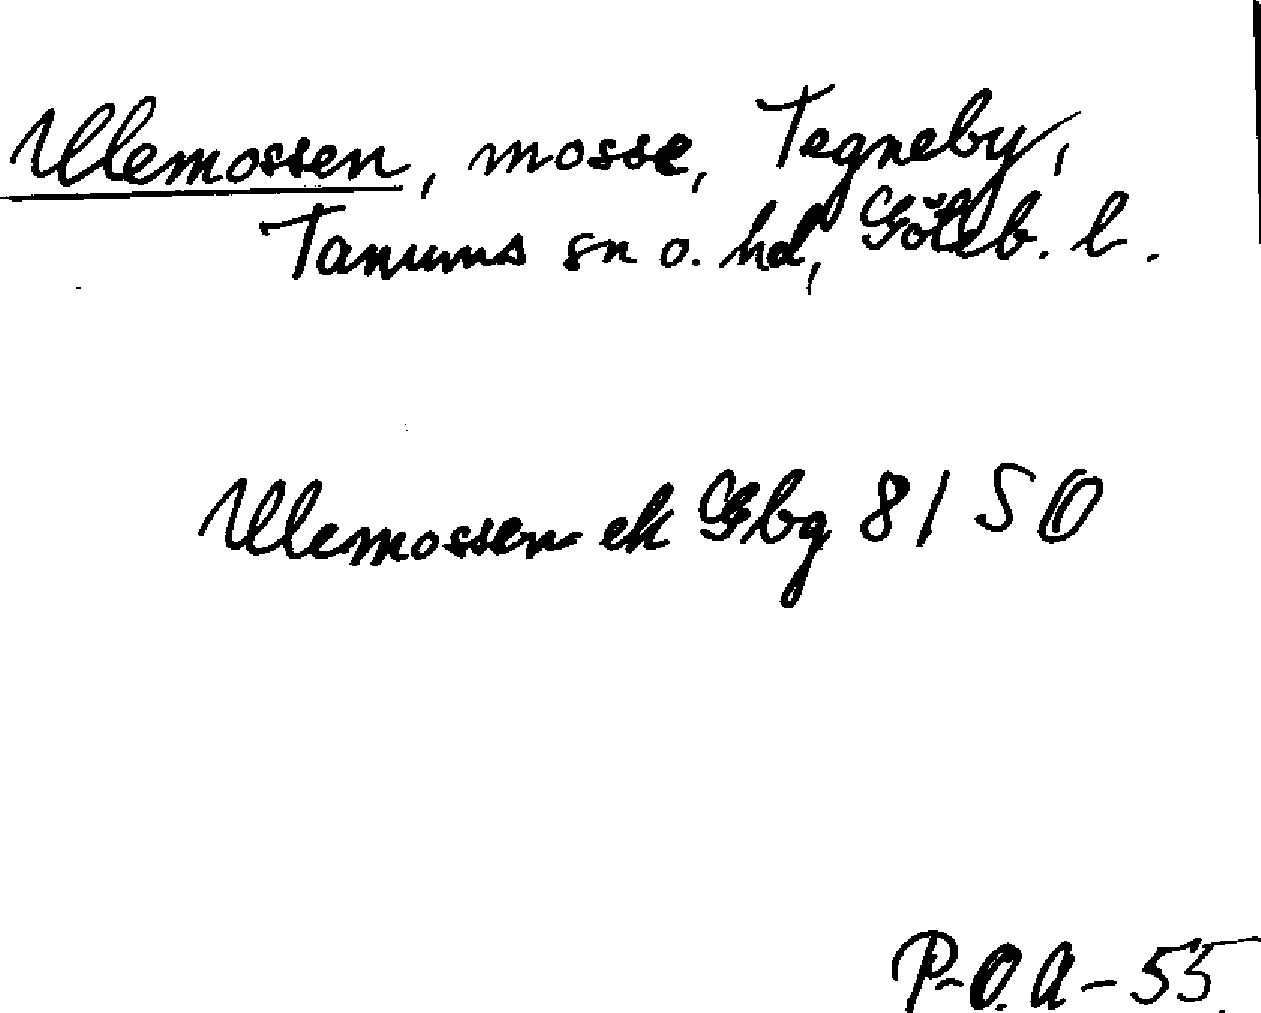 Ulemossen, mosse, Tegneby,
Tanums sn o. hd, Göteb. l.
Ulemossen ek Gbg 8150
P-O.A-55.